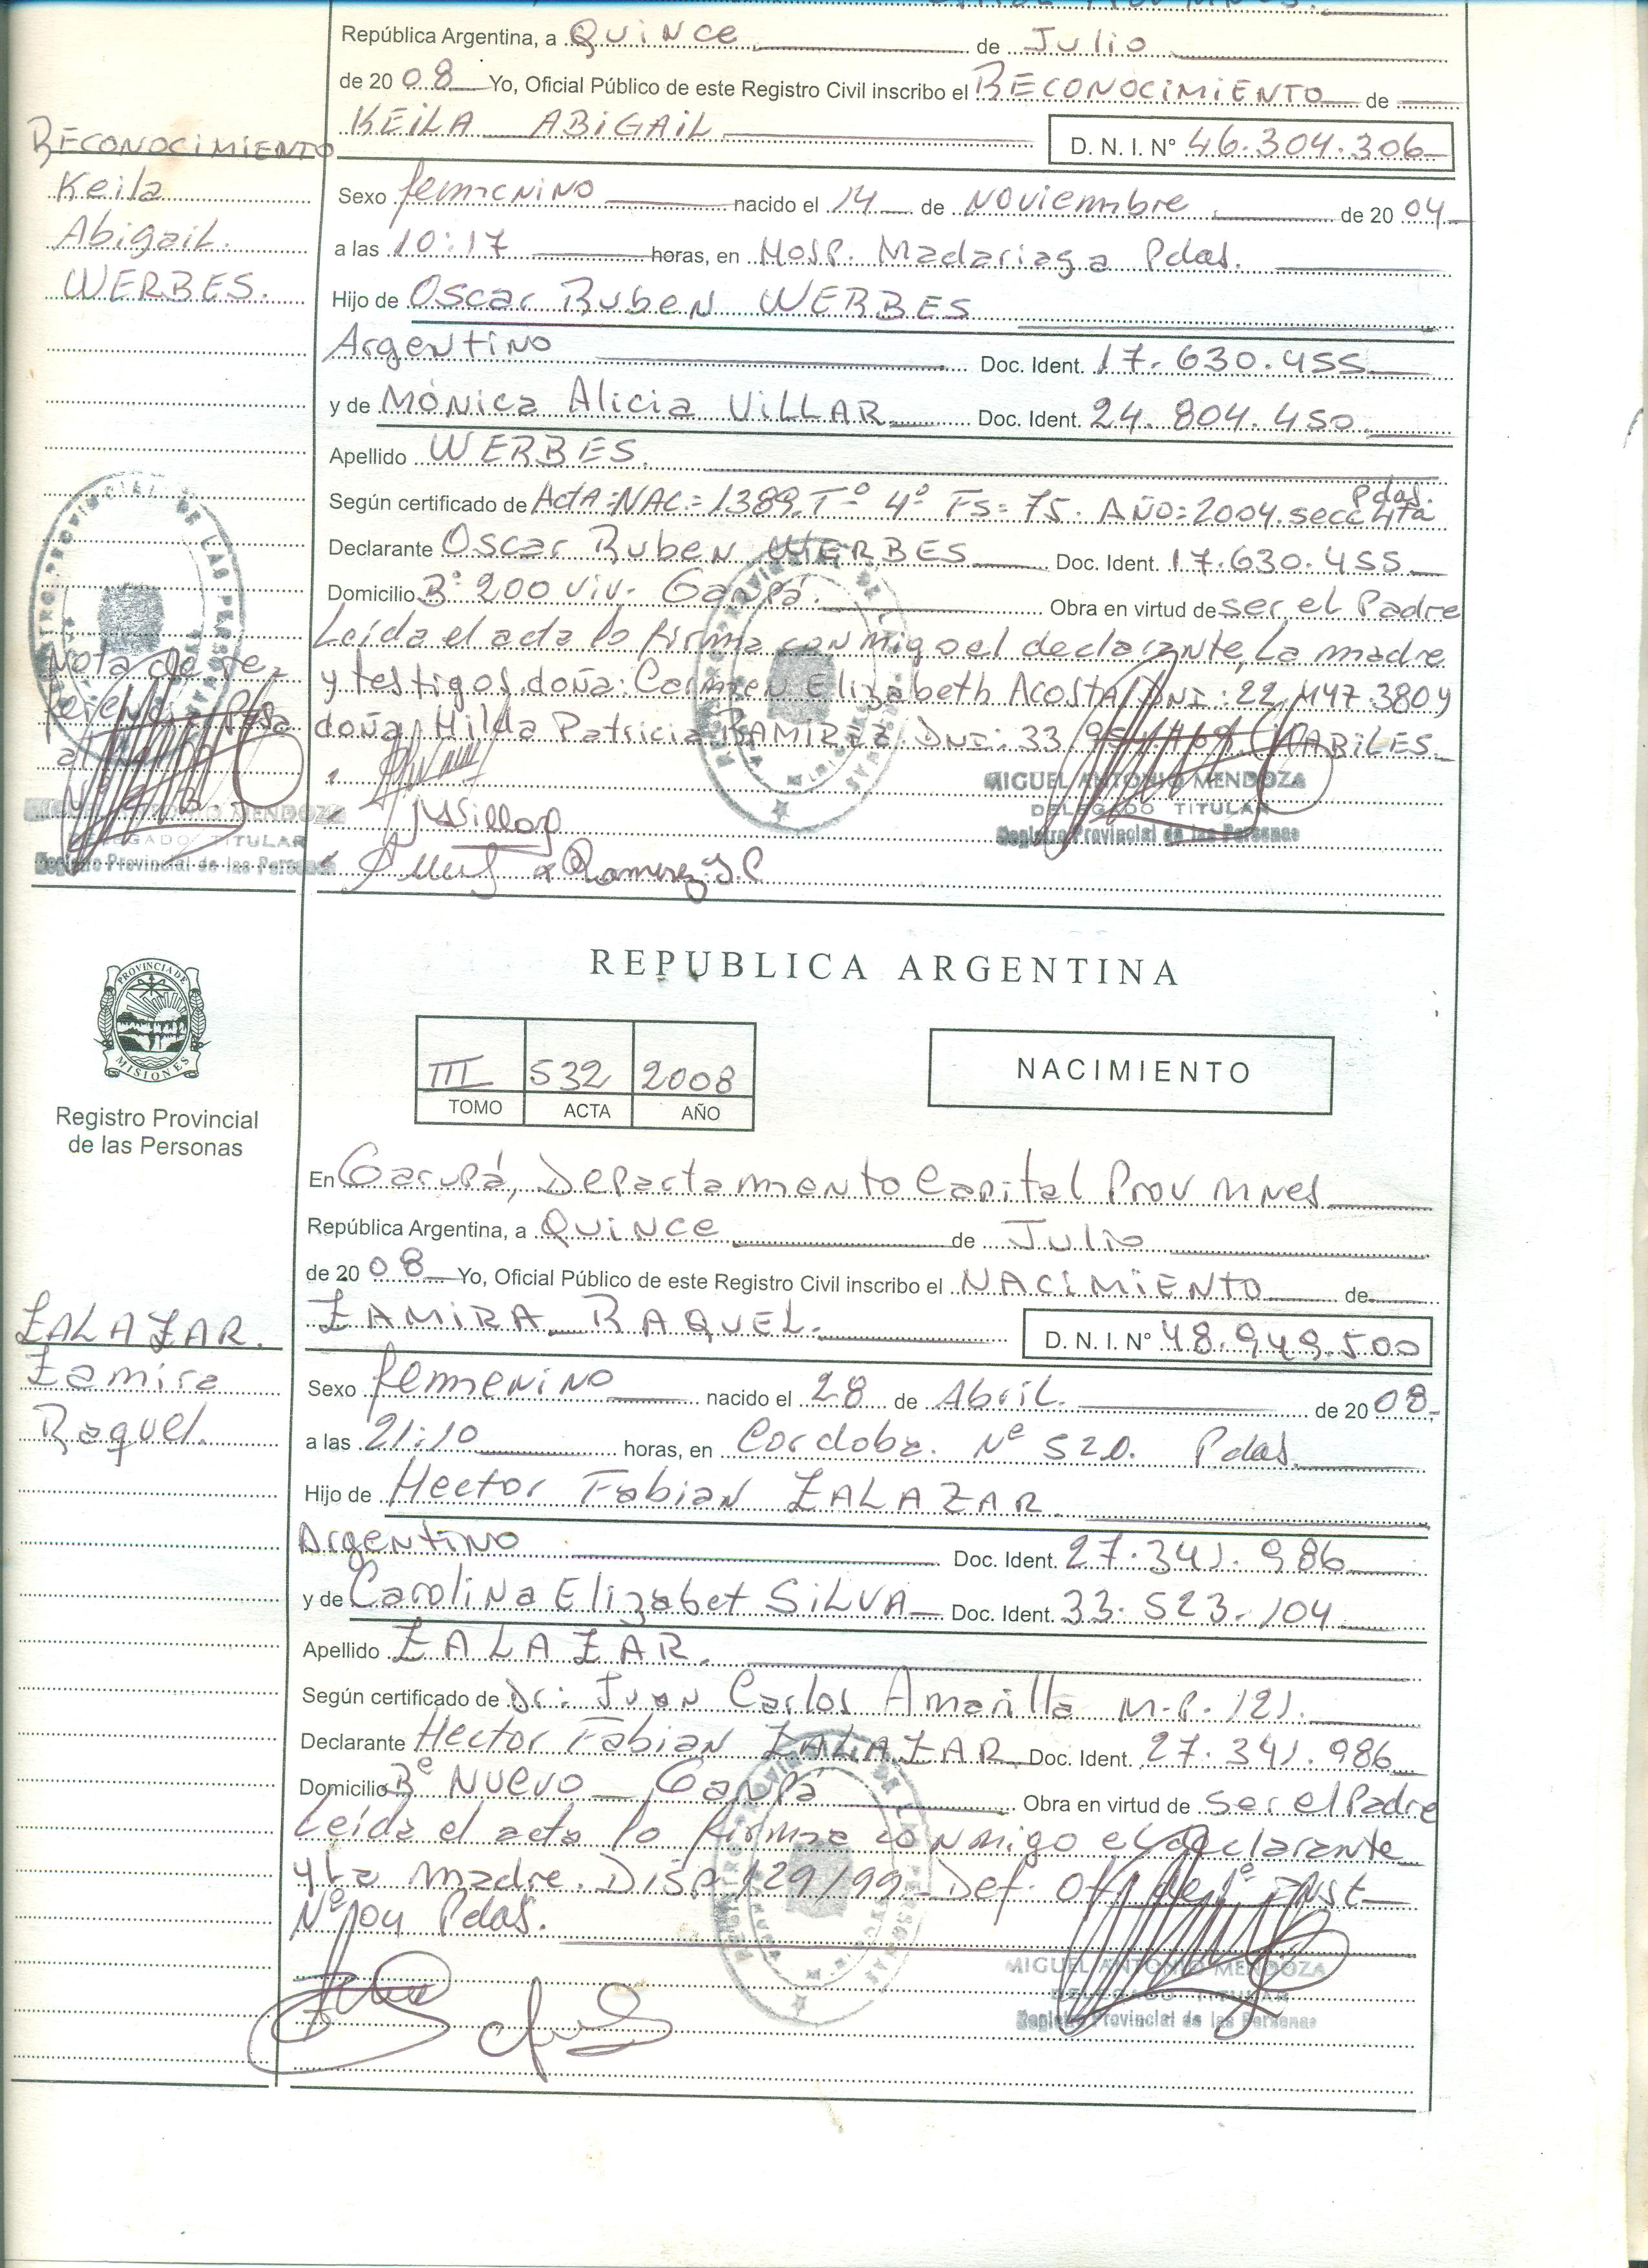 República Argentina, a Quince de Julio
de 2008 Yo, Oficial Público de este Registro Civil inscribo el RECONOCIMIENTO de
KEILA ABIGAIL D. N. I. N° 46.304.306
RECONOCIMIENTO
Keila
Abigail.
WERBES.
Sexo femenino nacido el 14 de Noviembre de 2004
a las 10:17 horas, en Hosp. Madariaga Pdas.
Hijo de Oscar Ruben WERBES
Argentino Doc. Ident. 17.630.455
y de Mónica Alicia VILLAR Doc. Ident. 24.804.450
Apellido WERBES.
Según certificado de Acta:NAC.=1389.T° 4° Fs=75. AÑO=2004.secc 4ta Pdas.
Declarante Oscar Ruben WERBES Doc. Ident. 17.630.455
Domicilio B° 200 viv. Garupá. Obra en virtud de ser el Padre
Leída el acta lo firma conmigo el declarante, La madre
y testigos doña: Carmen Elizabeth Acosta DNI: 22.447.380 y
doña Hilda Patricia RAMIREZ DNI: 33. HABILES.
Nota de re
MIGUEL ANTONIO MENDOZA
DELEGADO TITULAR
Registro Provincial de las Personas
MIGUEL ANTONIO MENDOZA
DELEGADO TITULAR
Registro Provincial de las Personas
MVillar
Ramirez
REPUBLICA ARGENTINA
PROVINCIA DE
MISIONES
Registro Provincial
de las Personas
III 532 2008
TOMO ACTA AÑO
NACIMIENTO
En Garupá, Departamento Capital Prov Mnes
República Argentina, a Quince de Julio
de 2008 Yo, Oficial Público de este Registro Civil inscribo el NACIMIENTO de
ZAMIRA RAQUEL. D. N. I. N° 48.949.500
ZALAZAR.
Zamira
Raquel.
Sexo femenino nacido el 28 de Abril. de 2008.
a las 21:10 horas, en Cordoba. N° 520. Pdas.
Hijo de Hector Fabian ZALAZAR
Argentino Doc. Ident. 27.341.986
y de Carolina Elizabet SILVA Doc. Ident. 33.523.104
Apellido ZALAZAR.
Según certificado de Dr: Juan Carlos Amarilla M.P. 121.
Declarante Hector Fabian ZALAZAR Doc. Ident. 27.341.986
Domicilio B° Nuevo Garupá Obra en virtud de ser el Padre
Leída el acta lo firma conmigo el declarante
y La madre. DISP. 129/99 - Def. Of. de 1° Inst
N° 04 Pdas.
MIGUEL ANTONIO MENDOZA
DELEGADO TITULAR
Registro Provincial de las Personas